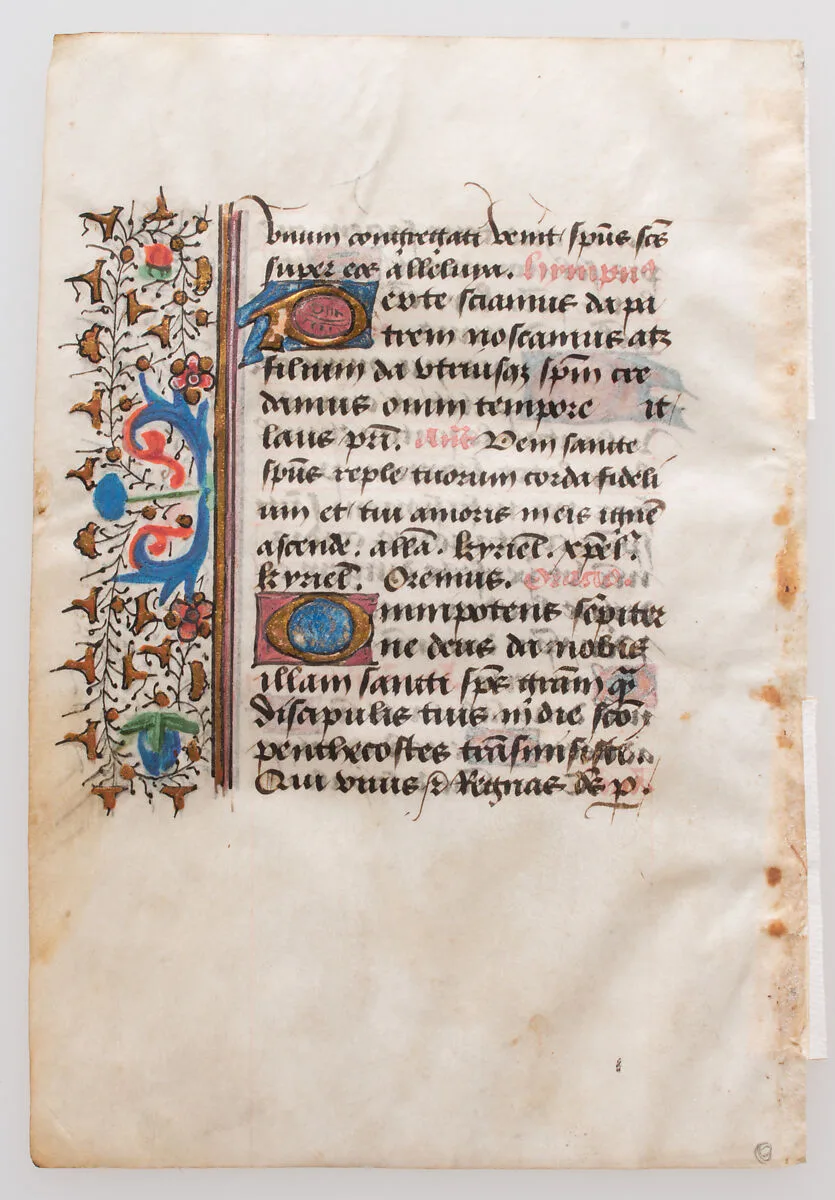 vnum congregati venit spūs scs
super eos alleluya. hympnus
Per te sciamus da pa
trem noscamus atqꝫ
filium da vtriusqꝫ spm̄ cre
damus omni tempore it
laus prī. Ant̄ Veni sancte
spūs reple tuorum corda fideli
um et tui amoris in eis ignē
ascende. allā. kyriel̄. xpel̄.
kyriel̄. Oremus. Oracio.
Omnipotens sēpiter
ne deus da nobis
illam sancti sps̄ grām q̄
discipulis tuis in die scō
penthecostes trāsmisisti
Qui viuis et Regnas ds̄ p.